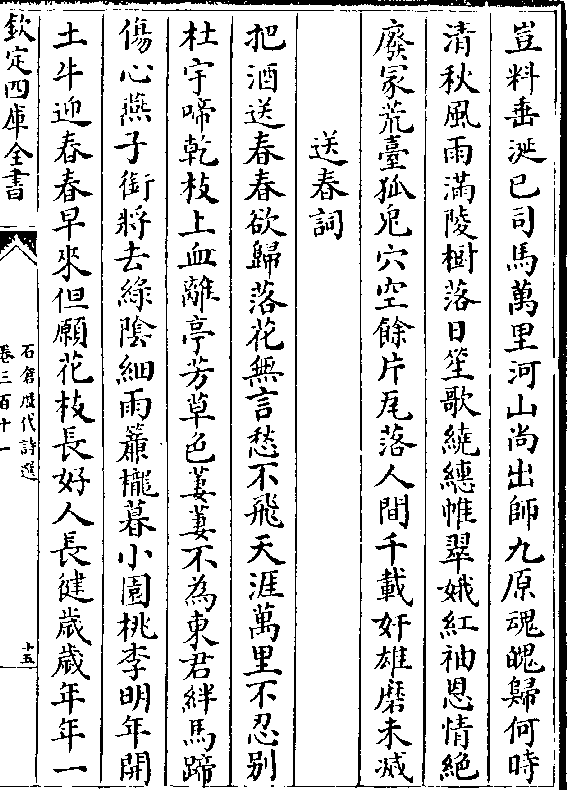 豈料垂涎已司馬萬里河山尚出師九原魂魄歸何時
清秋風雨滿陵樹落日笙歌繞繐帷翠娥紅袖恩情絶
廢冢荒臺狐兎穴空餘片瓦落人間千載奸雄磨未滅
送春詞
把酒送春春欲歸落花無言愁不飛天涯萬里不忍别
杜宇啼乾枝上血離亭芳草色萋萋不為東君絆馬蹄
傷心燕子銜將去綠陰細雨簾櫳暮小園桃李明年開
土牛迎春春早來但願花枝長好人長健歲歲年年一
欽定四庫全書
石倉歷代詩選
卷三百十一
十五